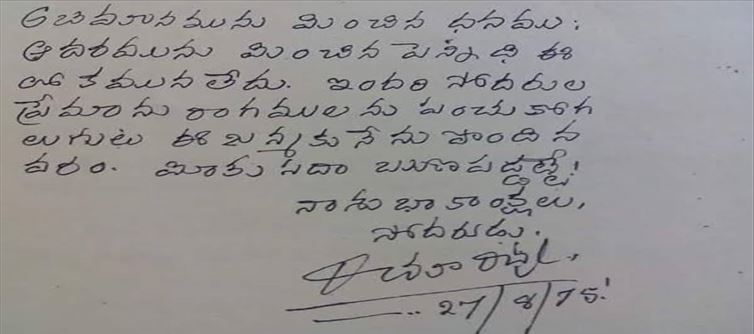 అభిమానమును మించిన ధనము;
ఆదరమును మించిన పెన్నిధి ఈ
లోకమున లేదు. ఇందరి సోదరుల
ప్రేమాను రాగములను పంచుకోగ
లుగుట ఈ జన్మకు నేను పొందిన
వరం. మీకు సదా ఋణపడ్డట్లే!
నా శుభాకాంక్షలు,
సోదరుడు.
27/8/75.